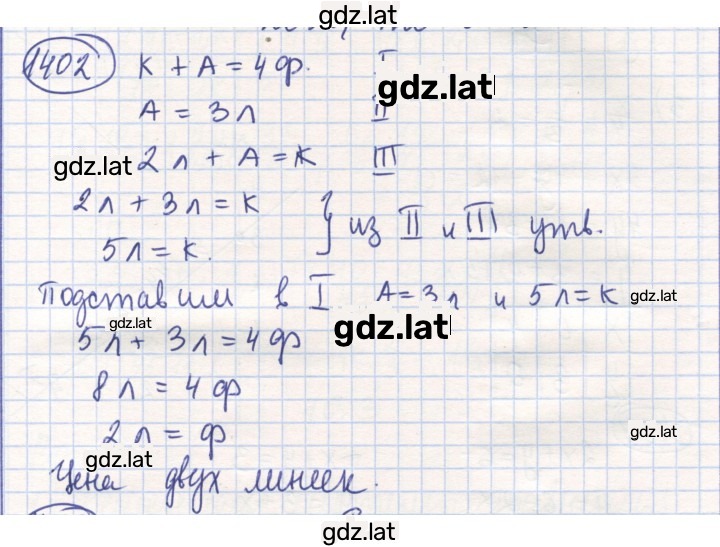 gdz.lat
1402 К + А = 4ф. I
gdz.lat
А = 3л II
gdz.lat 2л + А = К III
2л + 3л = К
5л = К. } из II и III утв.
Подставим в I А = 3л и 5л = К gdz.lat
gdz.lat
5л + 3л = 4ф gdz.lat
8л = 4ф
2л = ф gdz.lat
gdz.lat
Цена двух линеек.
gdz.lat